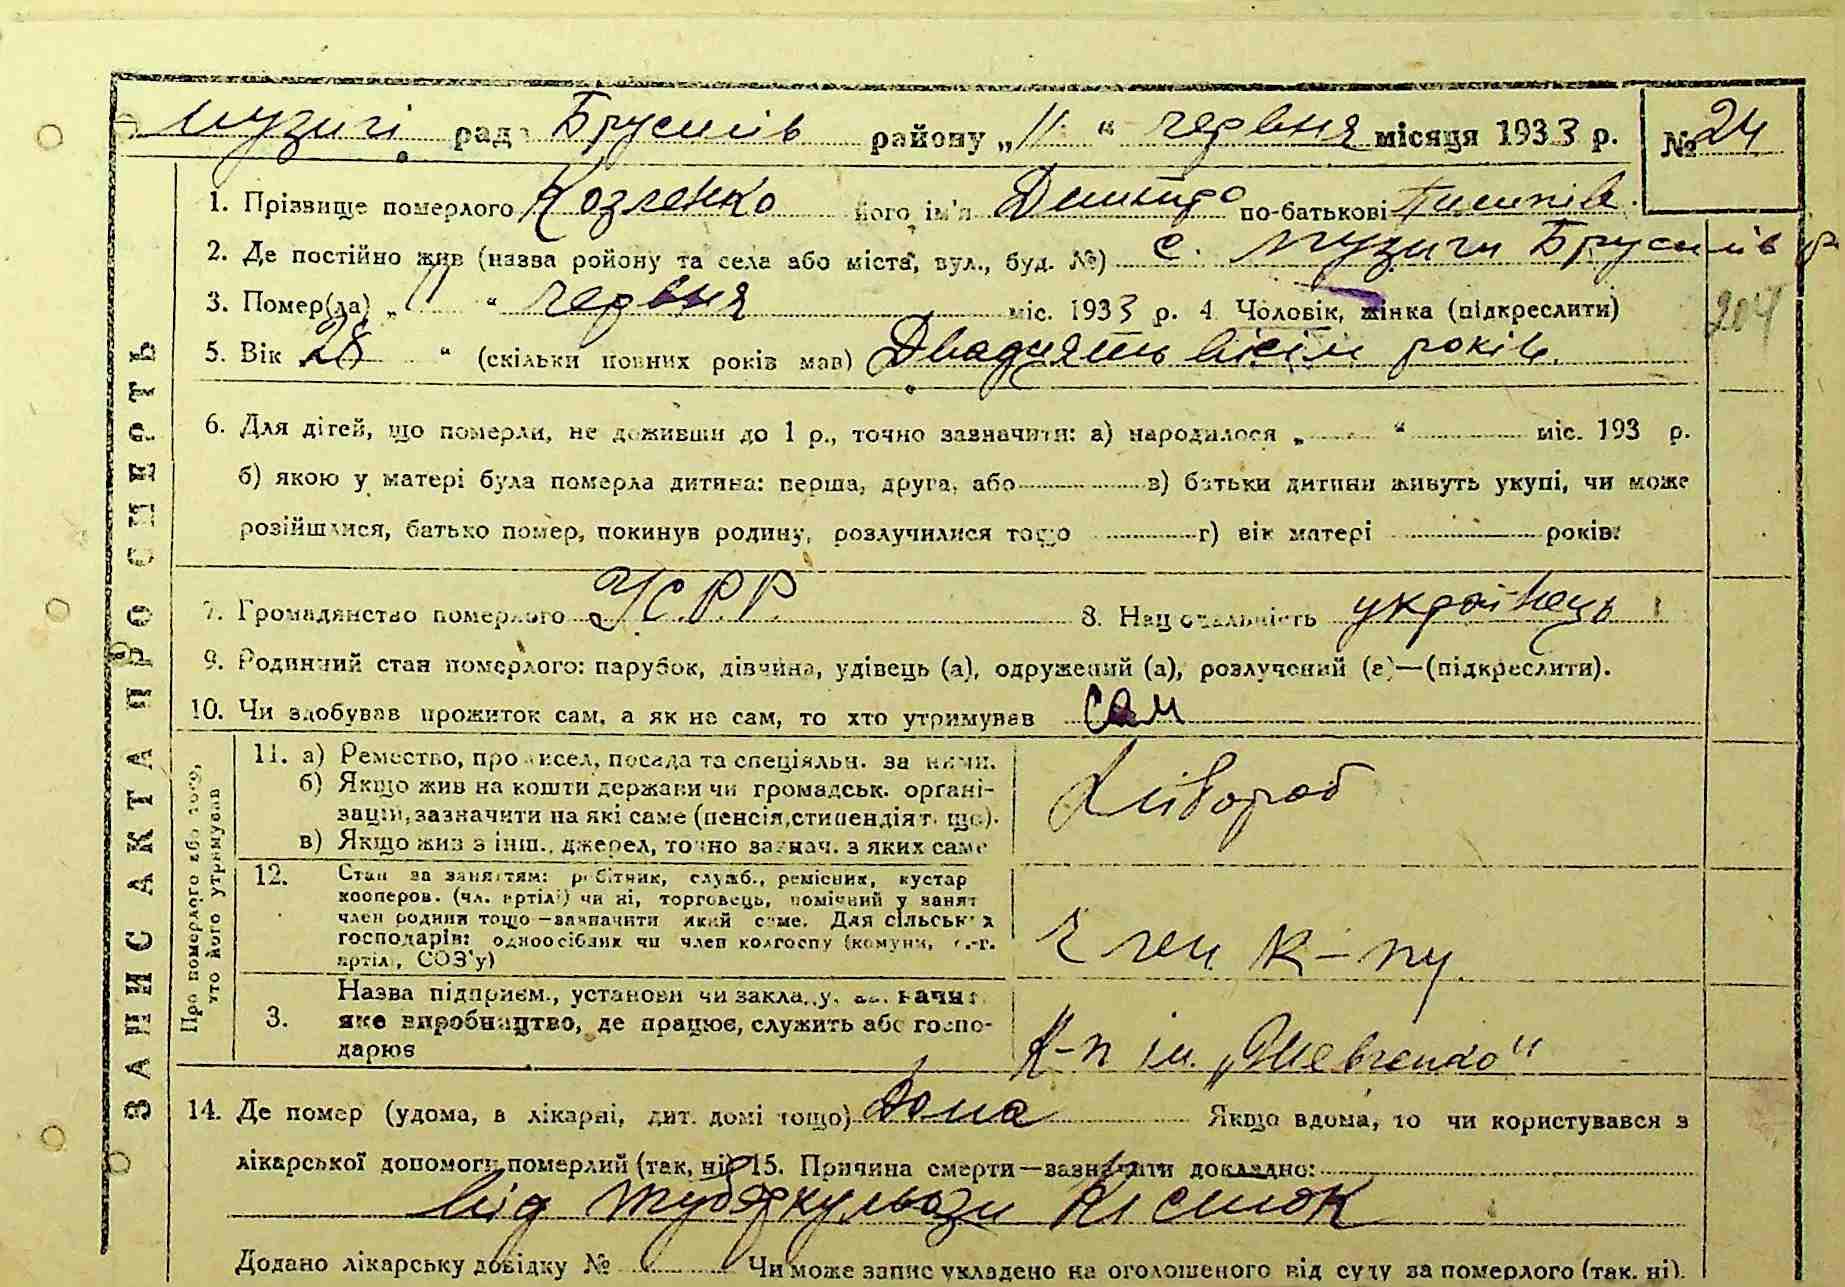 Музичі рад Брусилів району „11“ червня місяця 1933 р. № 24
1. Прізвище померлого Козленко його ім'я Дмитро по-батькові
2. Де постійно жив (назва ройону та села або міста, вул., буд. №) с. Музичи Брусилів р
204
3. Помер(ла) „11“ червня міс. 1933 р. 4. Чоловік, жінка (підкреслити)
5. Вік 28 “ (скільки повних років мав) Двадцять вісім років.
6. Для дітей, що померли, не доживши до 1 р., точно зазначити: а) народилося „ “ міс. 193 р.
б) якою у матері була померла дитина: перша, друга, або в) батьки дитини живуть укупі, чи може
розійшлися, батько помер, покинув родину, розлучилися тощо г) вік матері років:
7. Громадянство померлого УСРР 8. Національність українець
9. Родинний стан померлого: парубок, дівчина, удівець (а), одружений (а), розлучений (а)—(підкреслити).
10. Чи здобував прожиток сам, а як не сам, то хто утримував сам
ЗАПИС АКТА ПРО СМЕРТЬ
Про померлого або того, хто його утримував
11. а) Ремество, промисел, посада та спеціяльн. за ними.
б) Якщо жив на кошти держави чи громадськ. органі-
зацій, зазначити на які саме (пенсія, стипендія т. що).
в) Якщо жив з інш., джерел, точно зазнач. з яких саме
Хлібороб
12. Стан за заняттям: робітник, служб., ремісник, кустар
кооперов. (чл. артілі) чи ні, торговець, помічний у занят
член родини тощо—зазначити який саме. Для сільських
господарів: одноосібник чи член колгоспу (комуни, с.-г.
артілі, СОЗ'у)
Член к-пу.
3. Назва підприєм., установи чи закладу, зазначит.
яке виробництво, де працює, служить або госпо-
дарює
К-п ім. „Шевченко“
14. Де помер (удома, в лікарні, дит. домі тощо) дома Якщо вдома, то чи користувався з
лікарської допомоги померлий (так, ні) 15. Причина смерти—зазначити докладно:
від туберкульози кісток
Додано лікарську довідку № Чи може запис укладено на оголошеного від суду за померлого (так, ні).